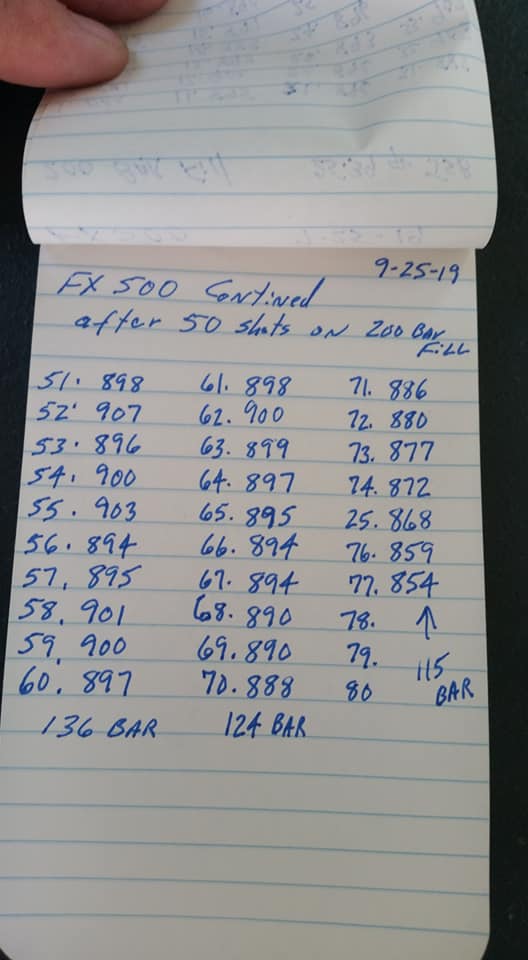 200 Bar Fill
9-25-19
FX 500 Contined
after 50 shots on 200 Bar
Fill
51. 898 61. 898 71. 886
52. 907 62. 900 72. 880
53. 896 63. 899 73. 877
54. 900 64. 897 74. 872
55. 903 65. 895 25. 868
56. 894 66. 894 76. 859
57. 895 67. 894 77. 854
58. 901 68. 890 78. ↑
59. 900 69. 890 79. 115
60. 897 70. 888 80 BAR
136 BAR 124 BAR